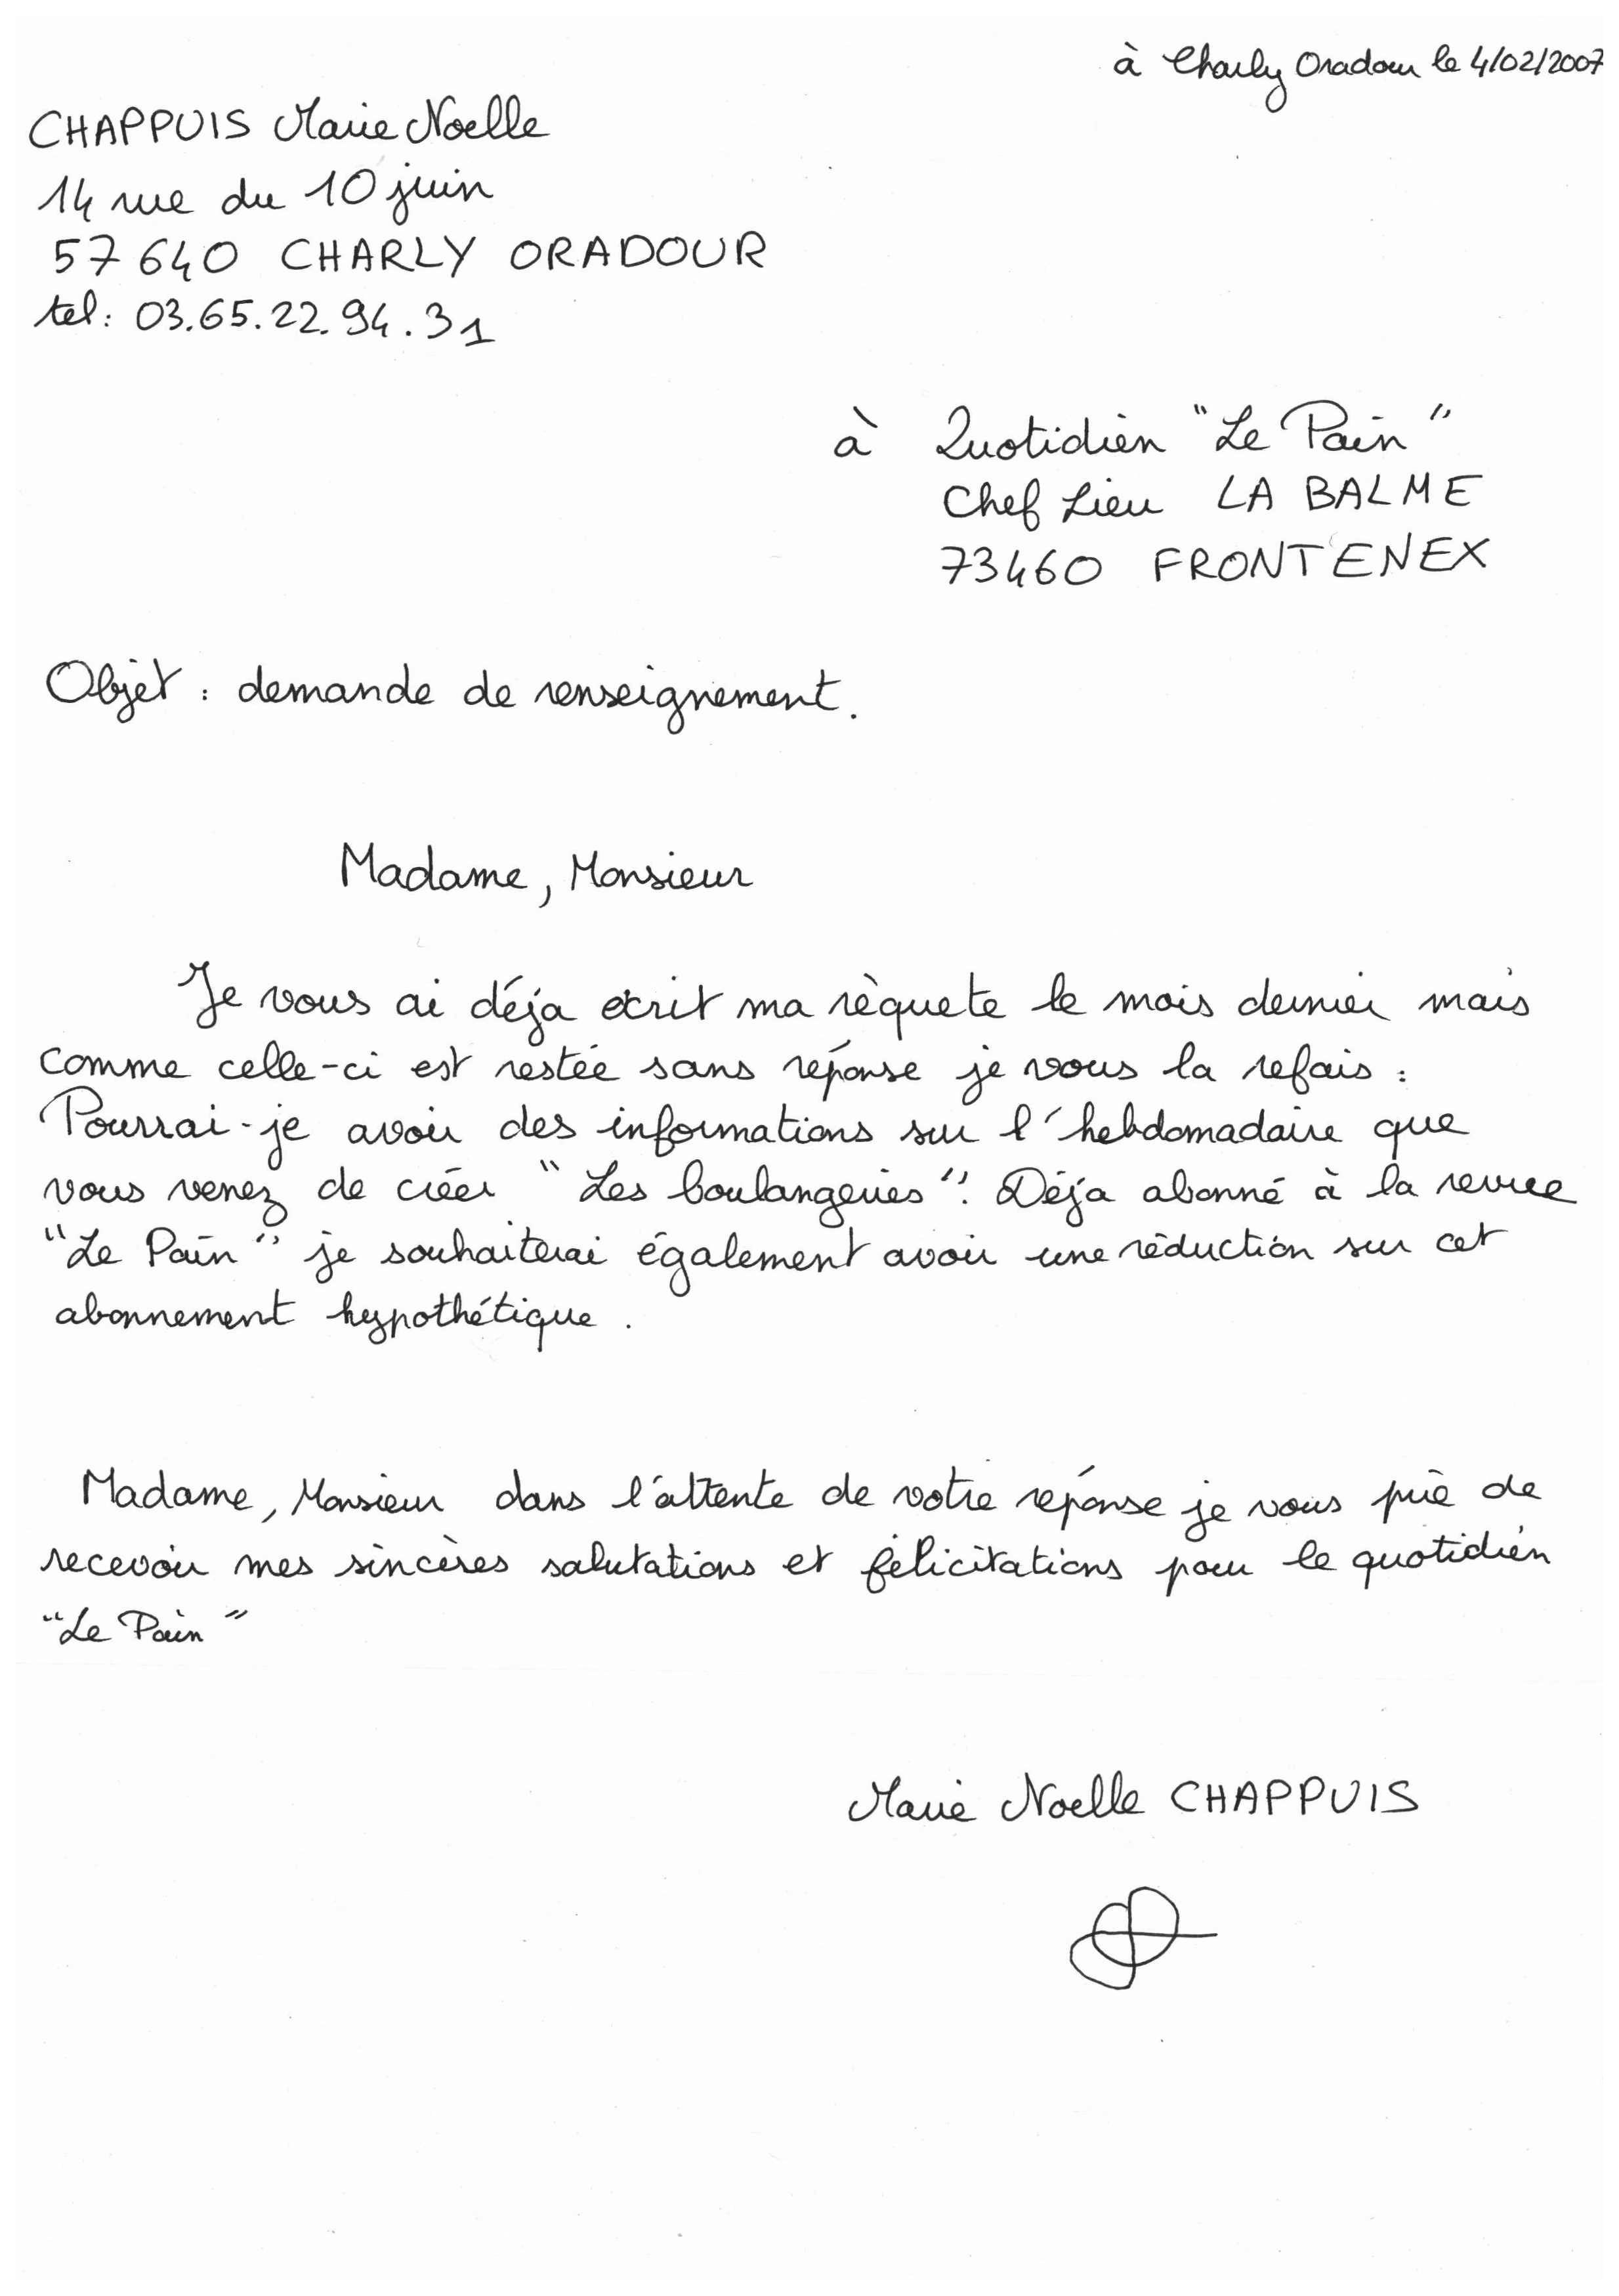 à Charly Oradour le 4/02/2007
CHAPPUIS Marie Noelle
14 rue du 10 juin
57640 CHARLY ORADOUR
tel: 03.65.22.94.31
à Quotidien "Le Pain"
Chef Lieu LA BALME
73460 FRONTENEX
Objet : demande de renseignement.
Madame, Monsieur
Je vous ai déja ecrit ma rèquete le mois dernier mais
comme celle-ci est restée sans réponse je vous la refais :
Pourrai-je avoir des informations sur l'hebdomadaire que
vous venez de créer "Les boulangeries". Déja abonné à la revue
"Le Pain" je souhaiterai également avoir une réduction sur cet
abonnement hypothétique.
Madame, Monsieur dans l'attente de votre réponse je vous prie de
recevoir mes sincères salutations et félicitations pour le quotidien
"Le Pain"
Marie Noelle CHAPPUIS